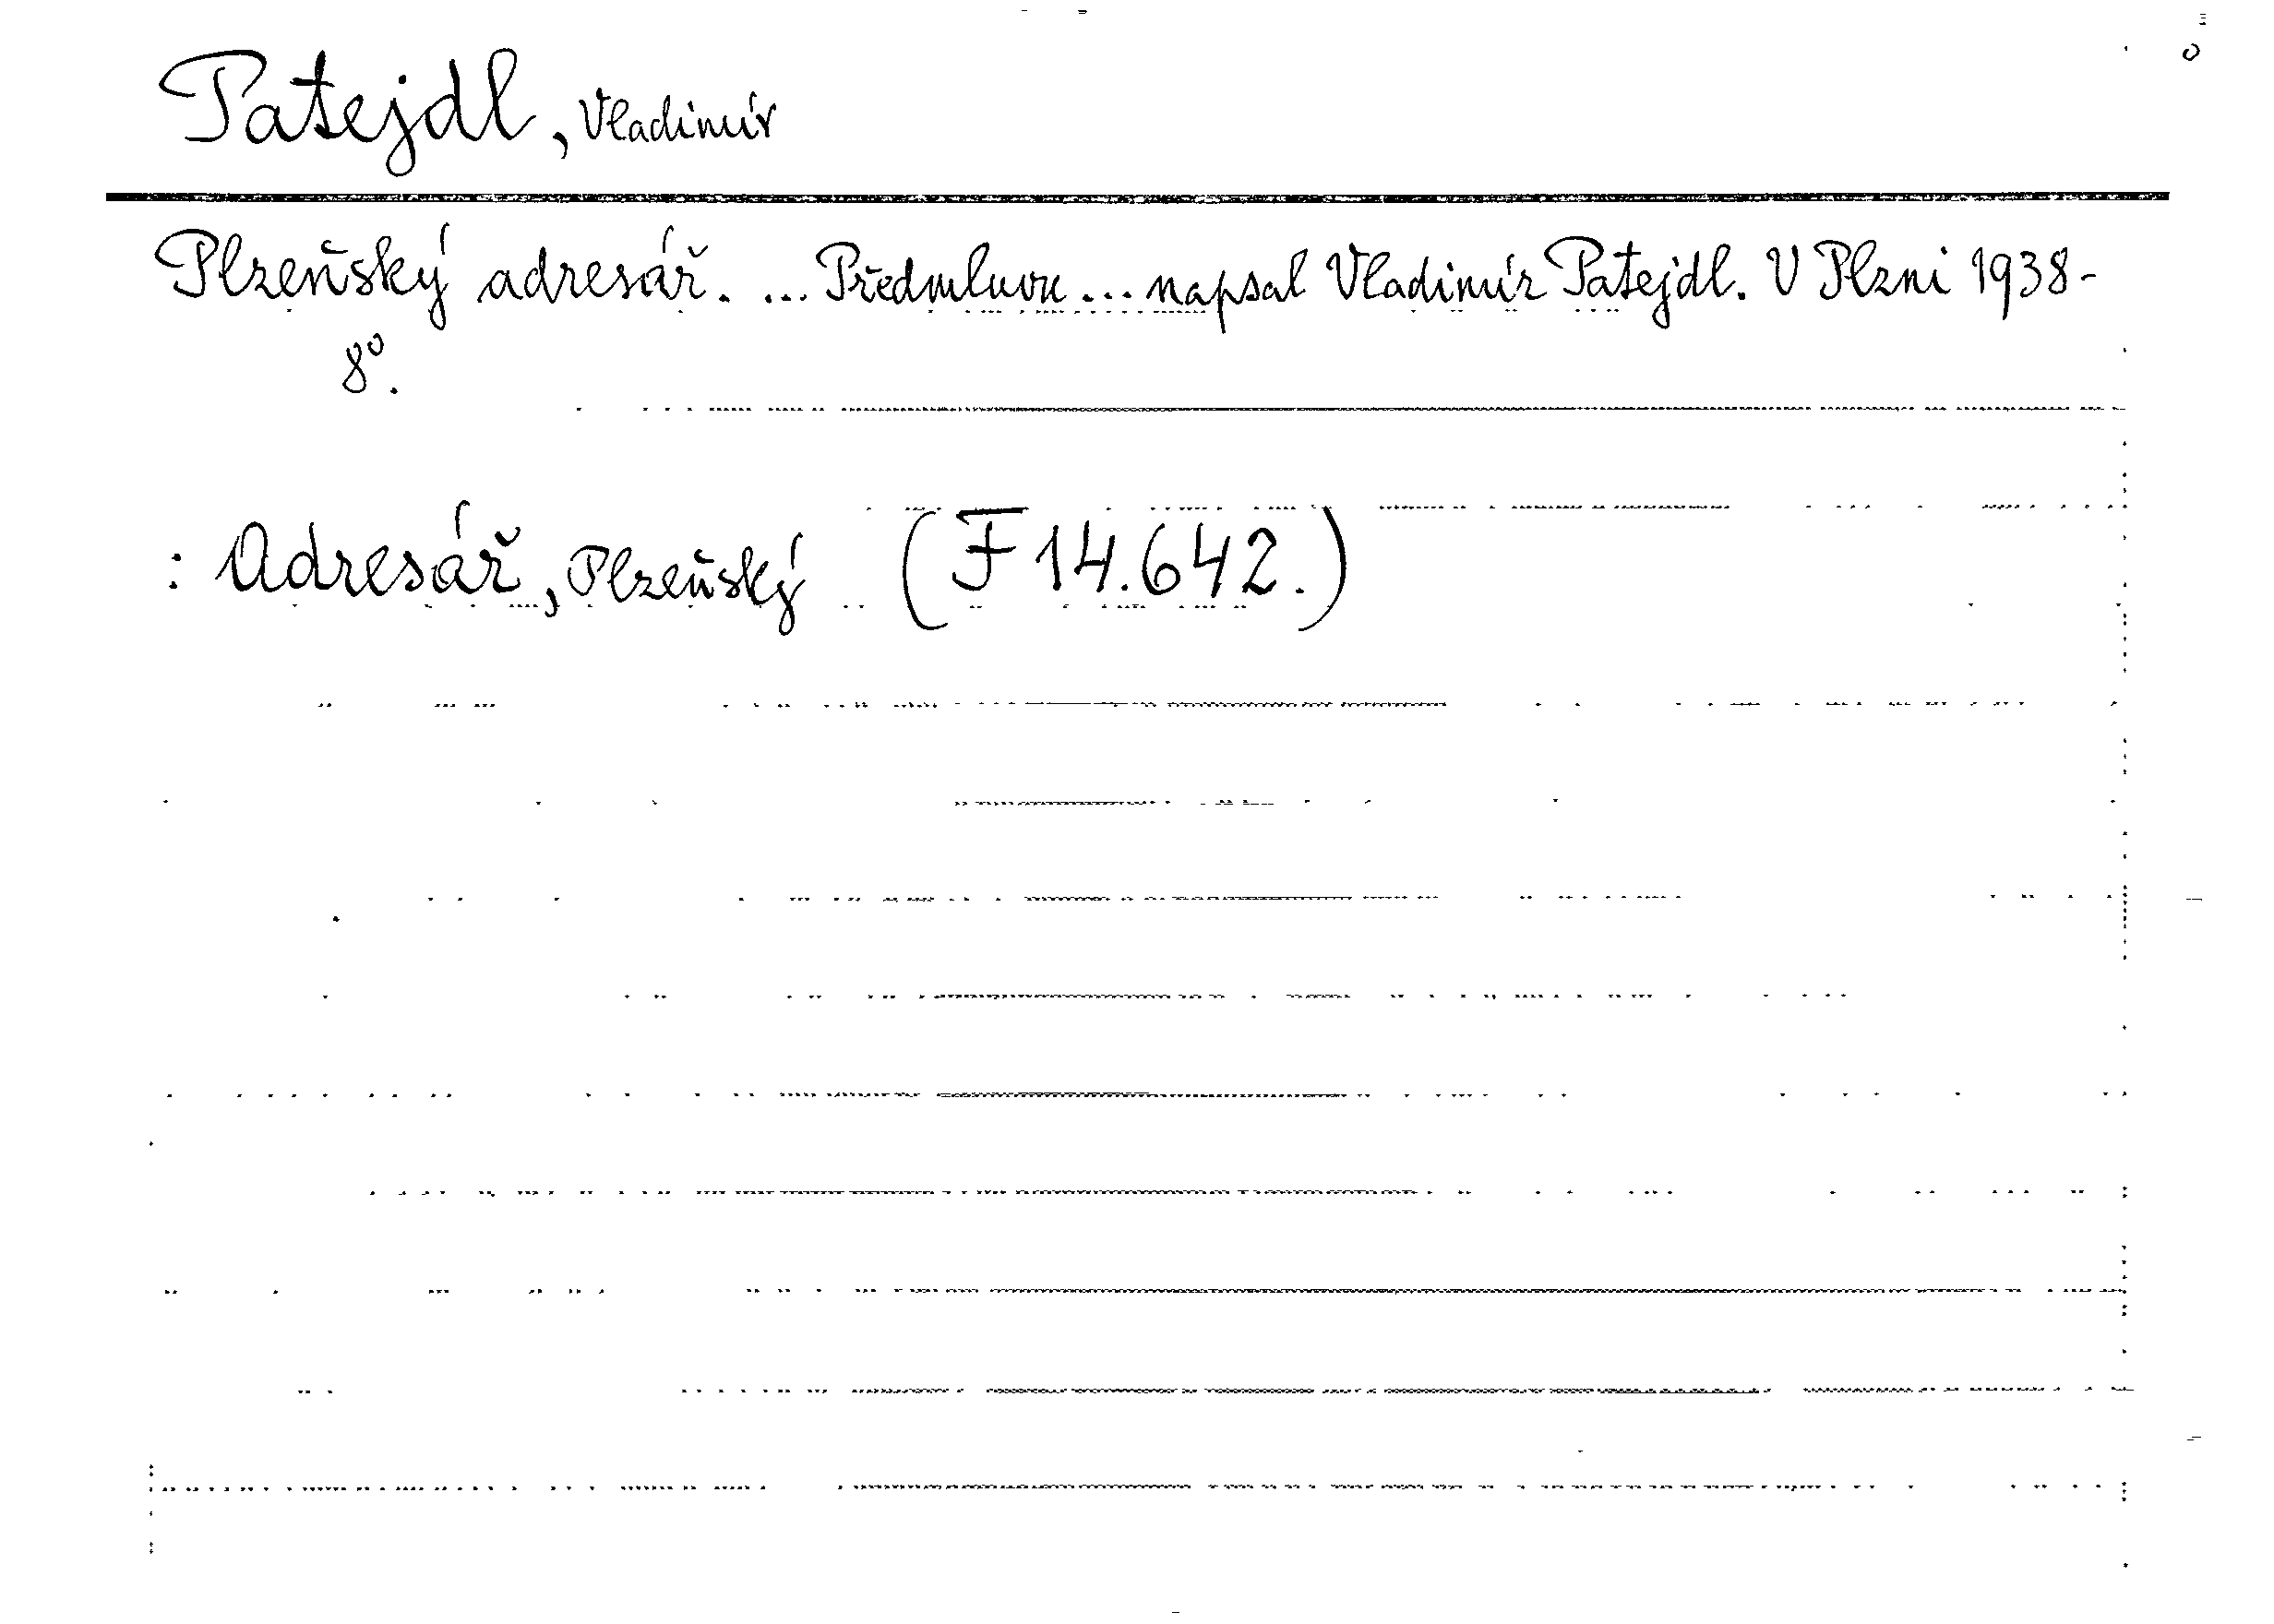 Patejdl, Vladimír
Plzeňský adresář. ... Předmluvu ... napsal Vladimír Patejdl. V Plzni 1938-
8°.
: Adresář, Plzeňský (F 14.642.)